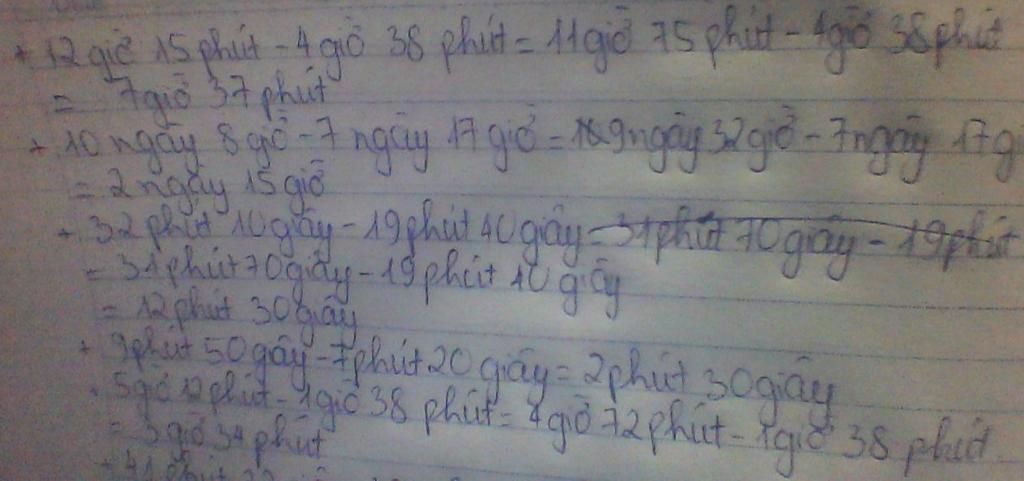 + 12 giờ 15 phút - 4 giờ 38 phút = 11 giờ 75 phút - 4 giờ 38 phút
= 7 giờ 37 phút
+ 10 ngày 8 giờ - 7 ngày 17 giờ = 9 ngày 32 giờ - 7 ngày 17 g
= 2 ngày 15 giờ
+ 32 phút 10 giây - 19 phút 40 giây = 31 phút 70 giây - 19 phút
= 31 phút 70 giây - 19 phút 40 giây
= 12 phút 30 giây
+ 9 phút 50 gây - 7 phút 20 giây = 2 phút 30 giây
. 5 giờ 12 phút - 1 giờ 38 phút = 4 giờ 72 phút - 1 giờ 38 phút
= 3 giờ 34 phút